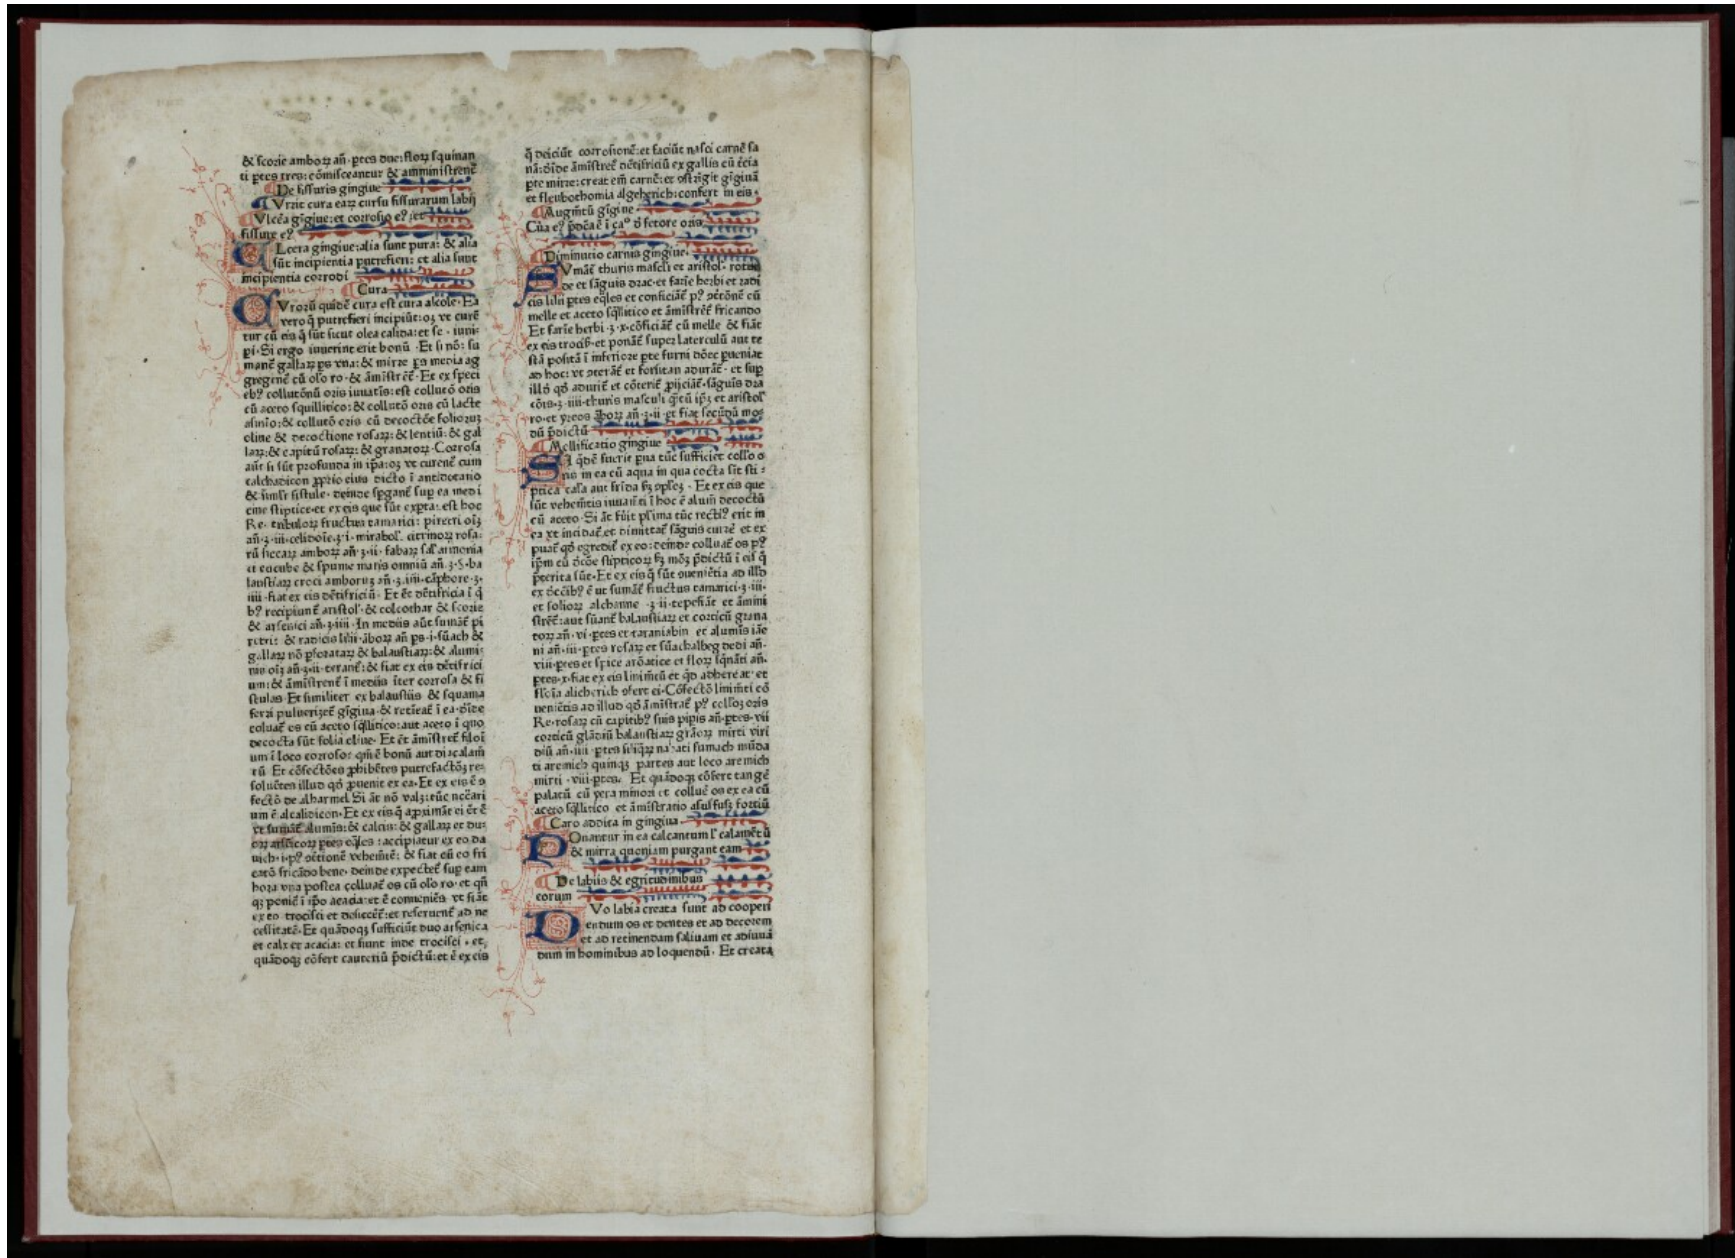 & scorie amboꝝ añ. ptes due: floꝝ squinan
ti ptes tres: cōmisceantur & amministrenť
De fissuris gingiue
Vrzie cura eaꝝ cursu fissurarum labij
Vlcēa gīgiue: et corrosio eꝰ et
fissure eꝰ
Lcera gingiue: alia sunt pura: & alia
sūt incipientia putrefieri: et alia sunt
incipientia corrodi
Cura
Vrorū quidē cura est cura alcole. Ea
vero q̄ putrefieri incipiūt: oꝫ vt curē
tur cū eis q̄ sūt sicut olea calida: et se. iuni-
pi. Si ergo iuuerint erit bonū. Et si nō: su
manť gallaꝝ ps vna: & mirre ps media ag
gregenť cū olo ro. & āmistreť. Et ex speci
ebꝰ collutōnū oris iuuatis: est collutō oris
cū aceto squillitico: & collutō oris cū lacte
asinīo: & collutō oris cū decoctōe folioruꝫ
oliue & decoctione rosaꝝ: & lentiū: & gal
laꝝ: & capitū rosaꝝ: & granatoꝝ. Corrosa
aūt si sūt profunda in ipa: oꝫ vt curenť cum
calchadicon pprio eius dicto ī antidotario
& simlr fistule. deinde spganť sup ea medi
cine stiptice. et ex eis que sūt expta: est hoc
Re. tribuloꝝ fructus tamarici: piretri oīꝫ
añ. ʒ. iii. celidoīe. ʒ. i. mirabol. citrinoꝝ rosa-
rū siccaꝝ amboꝝ añ. ʒ. ii. fabaꝝ sal armonia
ci eucube & spume maris omniū añ. ʒ. S. ba
laustiaꝝ croci amboruꝫ añ. ʒ. iiii. cāphore. ʒ.
iiii. fiat ex eis dētifriciū. Et ēt dētifricia ī q
bꝰ recipiunť aristol. & colcothar & scorie
& arsenici añ. ʒ. iiii. In mediis aūt sumāť pi
retri: & radicis lilii. āboꝝ añ ps. i. sūach &
gallaꝝ nō pforataꝝ & balaustiaꝝ: & alumi-
nis oīꝫ añ. ʒ. ii. teranť: & fiat ex eis dētifrici
um: & āmistrenť ī mediis īter corrosa & fi
stulas. Et similiter ex balaustiis & squama
ferri pulverizeť gīgiua. & retīeať ī ea. deīde
coluať os cū aceto sqllitico: aut aceto ī quo
decocta sūt folia oliue. Et ēt āmistreť filoī
um ī loco corroso: qm̄ ē bonū aut diacalam
tū. Et cōfectōes phibētes putrefactōꝫ re-
soluēten illud qd puenit ex ea. Et ex eis ē ꝯ
fectō de alharmel. Si āt nō valꝫ: tūc nccāri
um ē alcalidicon. Et ex eis q̄ apximāt ei ēt ē
vt sumāť alumīs: & calcis: & gallaꝝ et du-
oꝝ arsēicoꝝ ptes eqles: accipiatur ex eo da
nich. i. pꝰ ꝯtritionē vehemētē: & fiat cū eo fri
catō fricādo bene. deinde expecteť sup eam
hora vna postea colluať os cū olo ro. et qn̄
qꝫ poniť ī ipo acacia: et ē conueniēs vt fiāt
ex eo trocisci et desiccēť: et reseruenť ad ne
cessitatē. Et quādoqꝫ sufficiūt duo arsenica
et calx et acacia: et fiunt inde trocisci. et,
quādoqꝫ cōfert cauteriū pdictū: et ē ex eis
q̄ deiciūt corrosionē: et faciūt nasci carnē sa
nā: deīde āmistreť dētifriciū ex gallis cū t̄cia
pte mirre: creat em̄ carnē: et ꝯstrīgit gīgiuā
et fleubothomia algeherich: confert in eis.
Augm̄tū gīgiue
Cūa eꝰ pdcāē ī ca° d fetore oris
Diminutio carnis gingiue
Vmāť thuris mascli et aristol. rotun
de et sāguis drac. et farīe herbi et radi
cis lilii ptes eqles et conficiāť pꝰ ꝯtritōnē cū
melle et aceto sqllitico et āmistreť fricando
Et farīe herbi. ʒ. x. cōficiāť cū melle & fiāt
ex eis trocis. et ponāť super laterculū aut te
stā positā ī inferiore pte furni donec pueniat
ad hoc: vt ꝯterāť et forsitan adurāť. et sup
illđ qđ aduriť et cōteriť pijciať. sāguis dra
cōis. ʒ. iiii. thuris masculi qtū ipꝫ et aristol
ro. et yreos āboꝝ añ. ʒ. ii. et fiat secūdū mo-
dū pdictū
Mollificatio gingiue
I qdē fuerit pua tūc sufficiet collō o
ris in ea cū aqua in qua cocta sīt sti-
ptica calīa aut frīda ẜꝫ ꝯplexꝫ. Et ex eis que
sūt vehemētis iuuam̄ti ī hoc ē alum̄ decoctū
cū aceto. Si āt fūit plīma tūc rectiꝰ erit in
ea vt incidať et dimittať sāguis currē et ex
puať qđ egrediť ex eo: deinde colluať os pꝰ
ipm cū dcōe stipticoꝝ ẜꝫ mōꝫ pdictū ī eis q̄
pterita sūt. Et ex eis q̄ sūt ꝯueniētia ad illđ
ex dcctibꝰ ē ut sumāť fructus tamarici. ʒ. iii.
et folioꝝ alchanne. ʒ. ii. tepefiāt et āmini
streť: aut sūanť balaustiaꝝ et corticū grana
toꝝ añ. vi. ptes et taraniabin et alumis iāe
ni añ. iii. ptes rosaꝝ et sūachalbeg dedi añ.
viii. ptes et spice arōatice et floꝝ sqnāti añ.
ptes. x. fiat ex eis linimētū et qđ adhereat. et
flōia alicherich ꝯfert ei. Cōfectō linimti cō
uenientis ad illud qđ āmistrať pꝰ collōꝫ oris
Re. rosaꝝ cū capitibꝰ suis pipis añ. ptes. vii
corticū glādiū balaustiaꝝ grāoꝝ mirti viri
diū añ. iiii. ptes siliqꝝ nabati sumach mūda
ti aremich quinqꝫ partes aut loco aremich
mirti. viii. ptes. Et quādoqꝫ cōfert tangē
palatū cū yera minori et colluē os ex ea cū
aceto sqllitico et āmistratio asulfuſꝫ fortiū
Caro addita in gingiua
Onantur in ea calcantum ľ calamētū
& mirra quoniam purgant eam
De labiis & egritudinibus
eorum
Vo labia creata sunt ad cooperi
endum os et dentes et ad decorem
et ad retinendam saliuam et adiuuā
dum in hominibus ad loquendū. Et creata